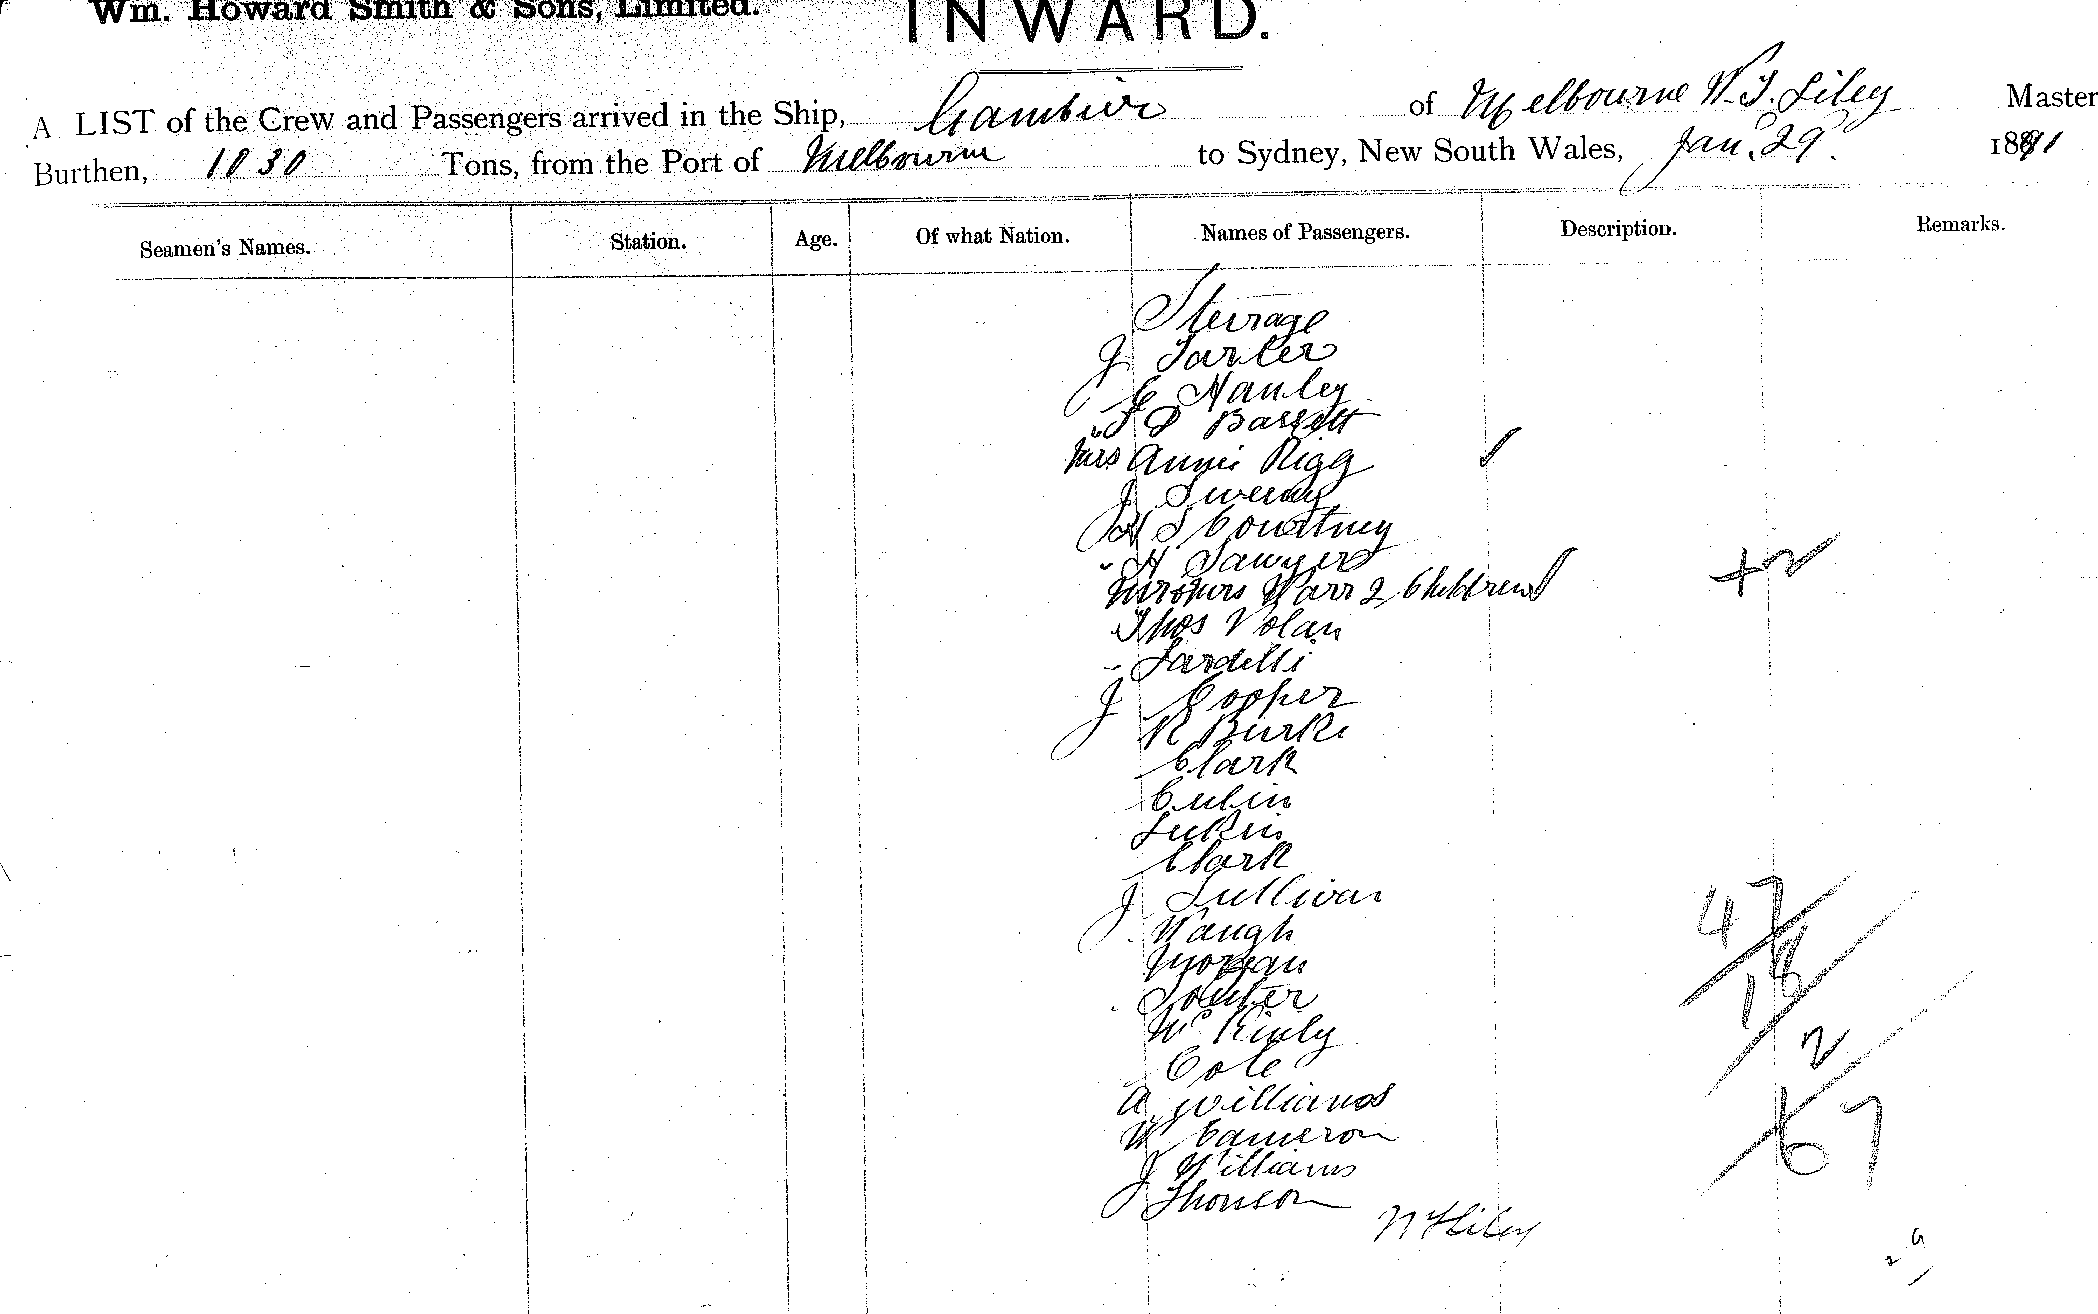 Wm. Howard Smith & Sons, Limited.
INWARD.
A LIST of the Crew and Passengers arrived in the Ship, Gambier of Melbourne W. T. Liley Master
Burthen, 1030 Tons, from the Port of Melbourne to Sydney, New South Wales, Jan. 29 1891
Seamen's Names. Station. Age. Of what Nation. Names of Passengers. Description. Remarks.
Steerage
J
Hanley
Bassett
Mrs Annie Rigg
J Sweeny
H S Courtney
H Sawyer
+2
Mr & Mrs Warr 2 Children
Thos Nolan
Sardelli
J Cooper
R Burke
Clark
Cubin
Larkin
Clark
J Sullivan
47
Waugh
Morgan
18
Souter
Mc Kinly
2
Cole
A. Williams
67
W Cameron
J Williams
Thomson
W T Liley